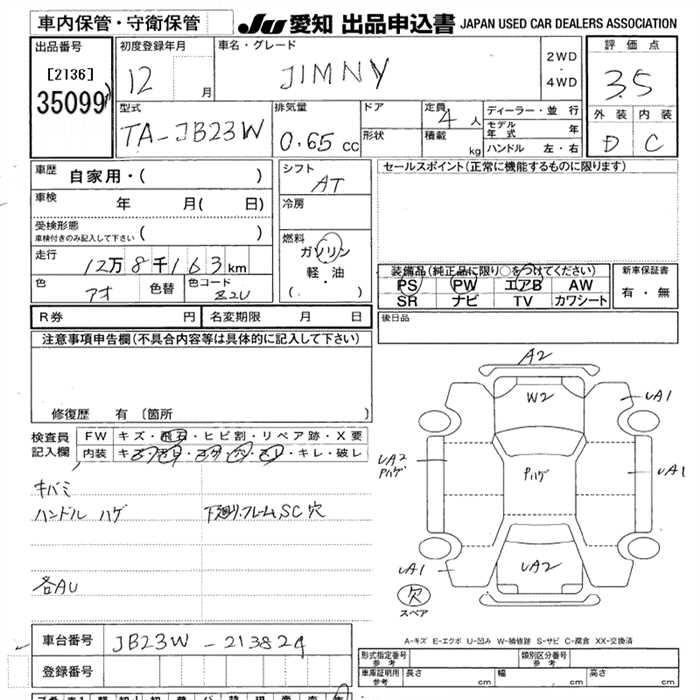 車内保管・守衛保管
JU 愛知 出品申込書 JAPAN USED CAR DEALERS ASSOCIATION
出品番号
[2136]
35099
初度登録年月
12 月
車名・グレード
JIMNY
2WD
・
4WD
評価点
3.5
外装 内装
D C
型式
TA-JB23W
排気量
0.65 cc
ドア
形状
定員
4 人
積載
kg
ディーラー・並行
モデル年式 年
ハンドル 左・右
車歴 自家用・( )
車検 年 月( 日)
受検形態
車検付きのみ記入して下さい ( )
走行
12万8千163km
色 アオ 色替 色コード Z2U
シフト
AT
冷房
燃料
ガソリン
軽・油
( ・ )
セールスポイント(正常に機能するものに限ります)
装備品(純正品に限り○をつけてください)
PS PW エアB AW
SR ナビ TV カワシート
新車保証書
有・無
後日品
R券 円 名変期限 月 日
注意事項申告欄(不具合内容等は具体的に記入して下さい)
修復歴 有 〔箇所 〕
検査員
記入欄
FW キズ・飛石・ヒビ割・リペア跡・X要
内装 キズ・汚レ・コゲ・穴・スレ・キレ・破レ
キバミ
ハンドル ハゲ
下廻り.フレーム.SC 穴
各AU
A2
W2
UA1
UA2
Pハゲ
Pハゲ
UA1
UA1
UA2
欠
スペア
A-キズ E-エクボ U-凹み W-補修跡 S-サビ C-腐食 XX-交換済
車台番号 JB23W-213824
登録番号
形式指定番号
参考
類別区分番号
参考
車庫証明用
参考
長さ cm 幅 cm 高さ cm